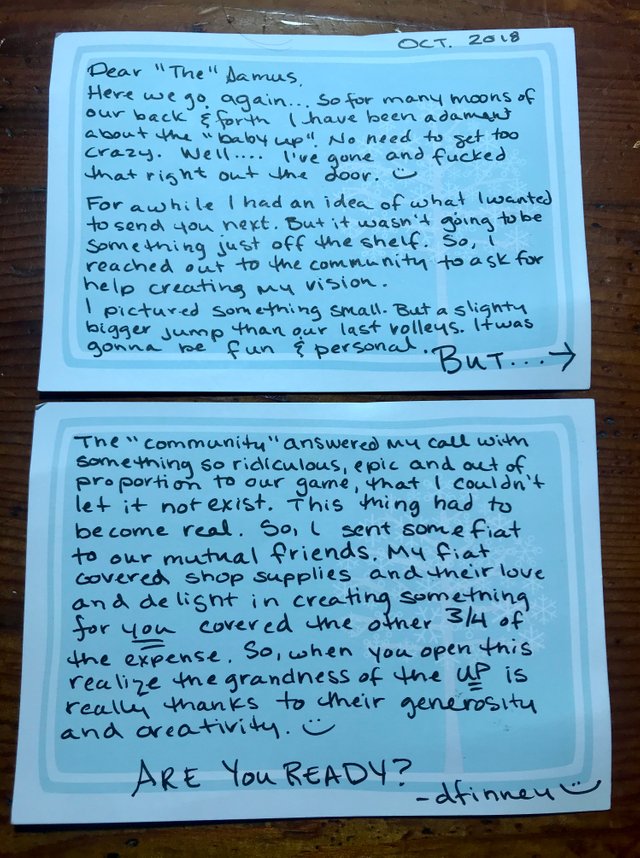 OCT. 2018
Dear "The" Damus,
Here we go again... So for many moons of
our back & forth I have been adamant
about the "baby up". No need to get too
crazy. Well.... I've gone and fucked
that right out the door. :)
For awhile I had an idea of what I wanted
to send you next. But it wasn't going to be
something just off the shelf. So, I
reached out to the community to ask for
help creating my vision.
I pictured something small. But a slighty
bigger jump than our last volleys. It was
gonna be fun & personal.
BUT...→
The "community" answered my call with
something so ridiculous, epic and out of
proportion to our game, that I couldn't
let it not exist. This thing had to
become real. So, I sent some fiat
to our mutual friends. My fiat
covered shop supplies and their love
and delight in creating something
for you covered the other 3/4 of
the expense. So, when you open this
realize the grandness of the UP is
really thanks to their generosity
and creativity. :)
ARE YOU READY?
-dfinney :)